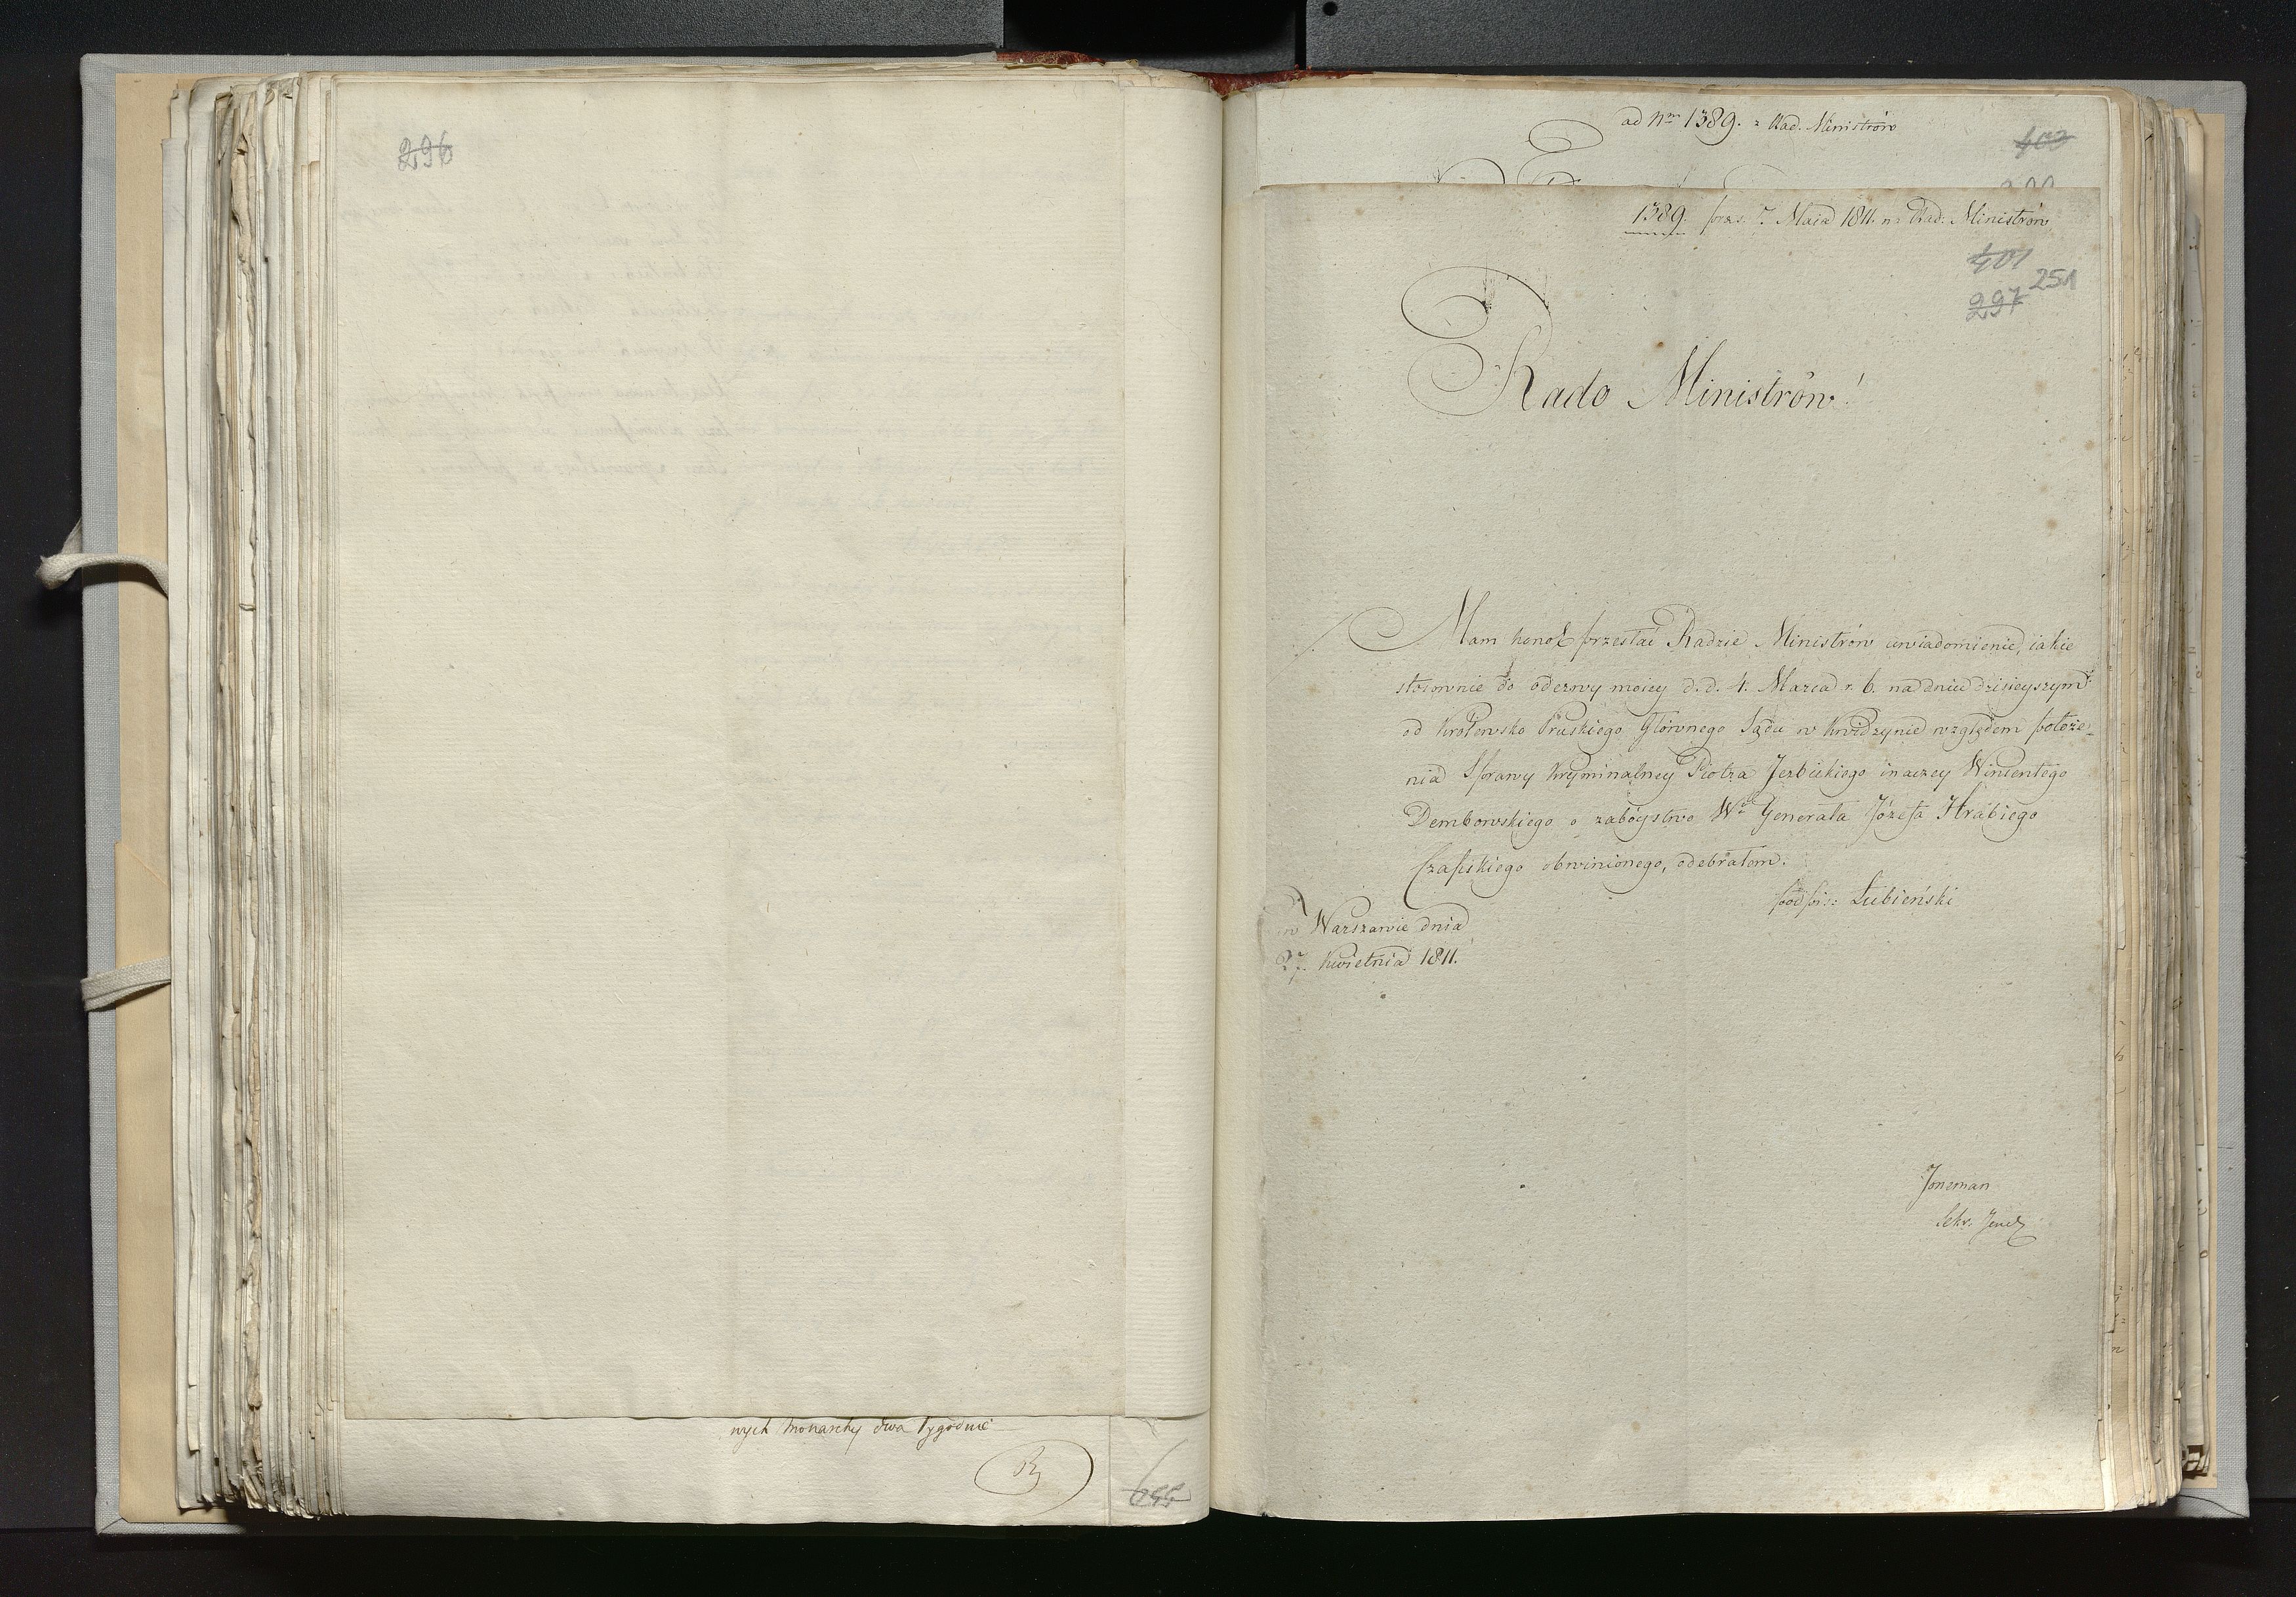 296
nych Monarchy dwa tygodnie
ad Nrm 1389. z Rad. Ministrów
403
1389. praes. 7. Maia 1811. n: Rad: Ministrów
401
251
297
Rado Ministrów!
Mam honor przesłać Radzie Ministrów uwiadomienie, iakie
stosownie do odezwy moiey d. d. 4. Marca r. b. na dniu dzisieyszym
od Krolewsko Pruskiego Głównego Sądu w Kwidzynie względem położe-
nia Sprawy Kryminalney Piotra Jezbickiego inaczey Wincentego
Dembowskiego o zabóystwo Wo Generała Józefa Hrabiego
Czapskiego obwinionego, odebrałem.
podpis: Łubieński
w Warszawie dnia
27. Kwietnia 1811.
Joneman
Sekr. Jen